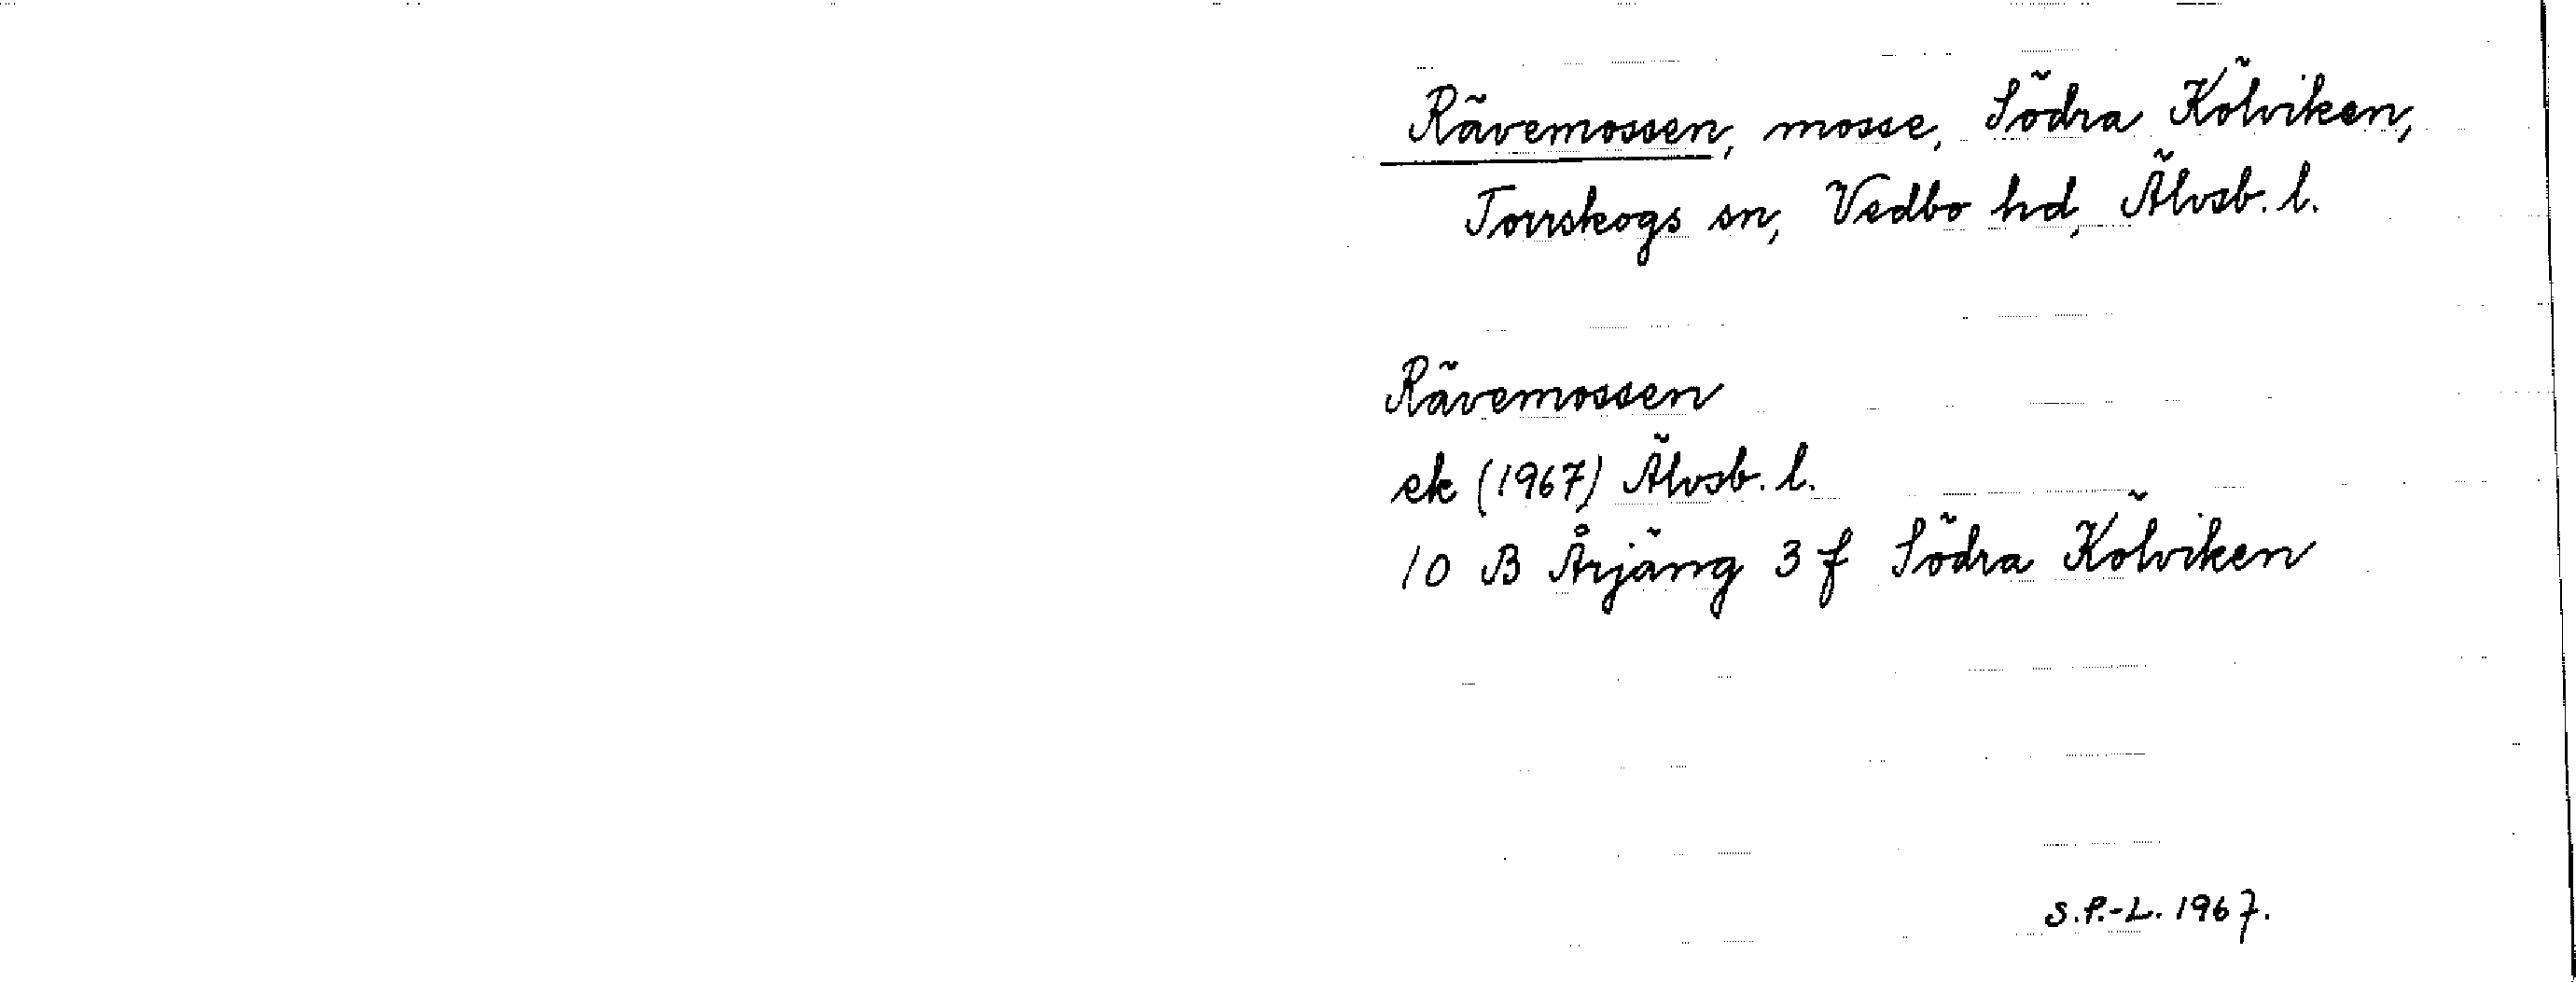 Rävemossen, mosse, Södra Kölviken,
Torrskogs sn, Vedbo hd, Älvsb. l.
Rävemossen
ek (1967) Älvsb. l.
10 B Årjäng 3 f Södra Kölviken
S.P.-L. 1967.